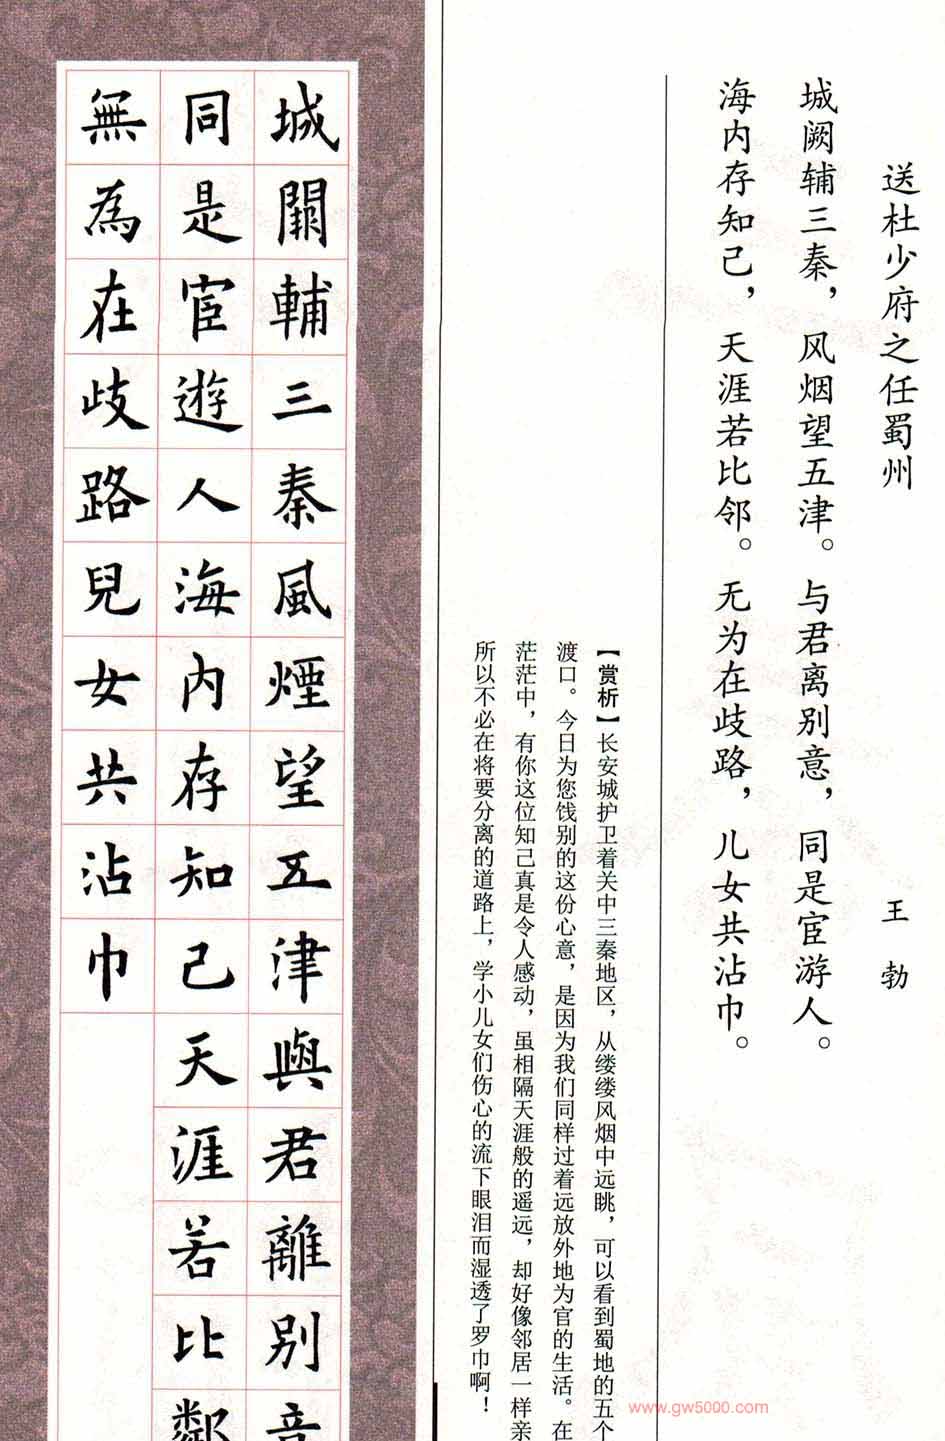 送杜少府之任蜀州
王勃
城阙辅三秦，风烟望五津。与君离别意，同是宦游人。
海内存知己，天涯若比邻。无为在歧路，儿女共沾巾。
【赏析】长安城护卫着关中三秦地区，从缕缕风烟中远眺，可以看到蜀地的五个
渡口。今日为您饯别的这份心意，是因为我们同样过着远放外地为官的生活。在
茫茫中，有你这位知己真是令人感动，虽相隔天涯般的遥远，却好像邻居一样亲
所以不必在将要分离的道路上，学小儿女们伤心的流下眼泪而湿透了罗巾啊！
城闕輔三秦風煙望五津與君離別意
同是宦遊人海內存知己天涯若比鄰
無為在歧路兒女共沾巾
www.gw5000.com